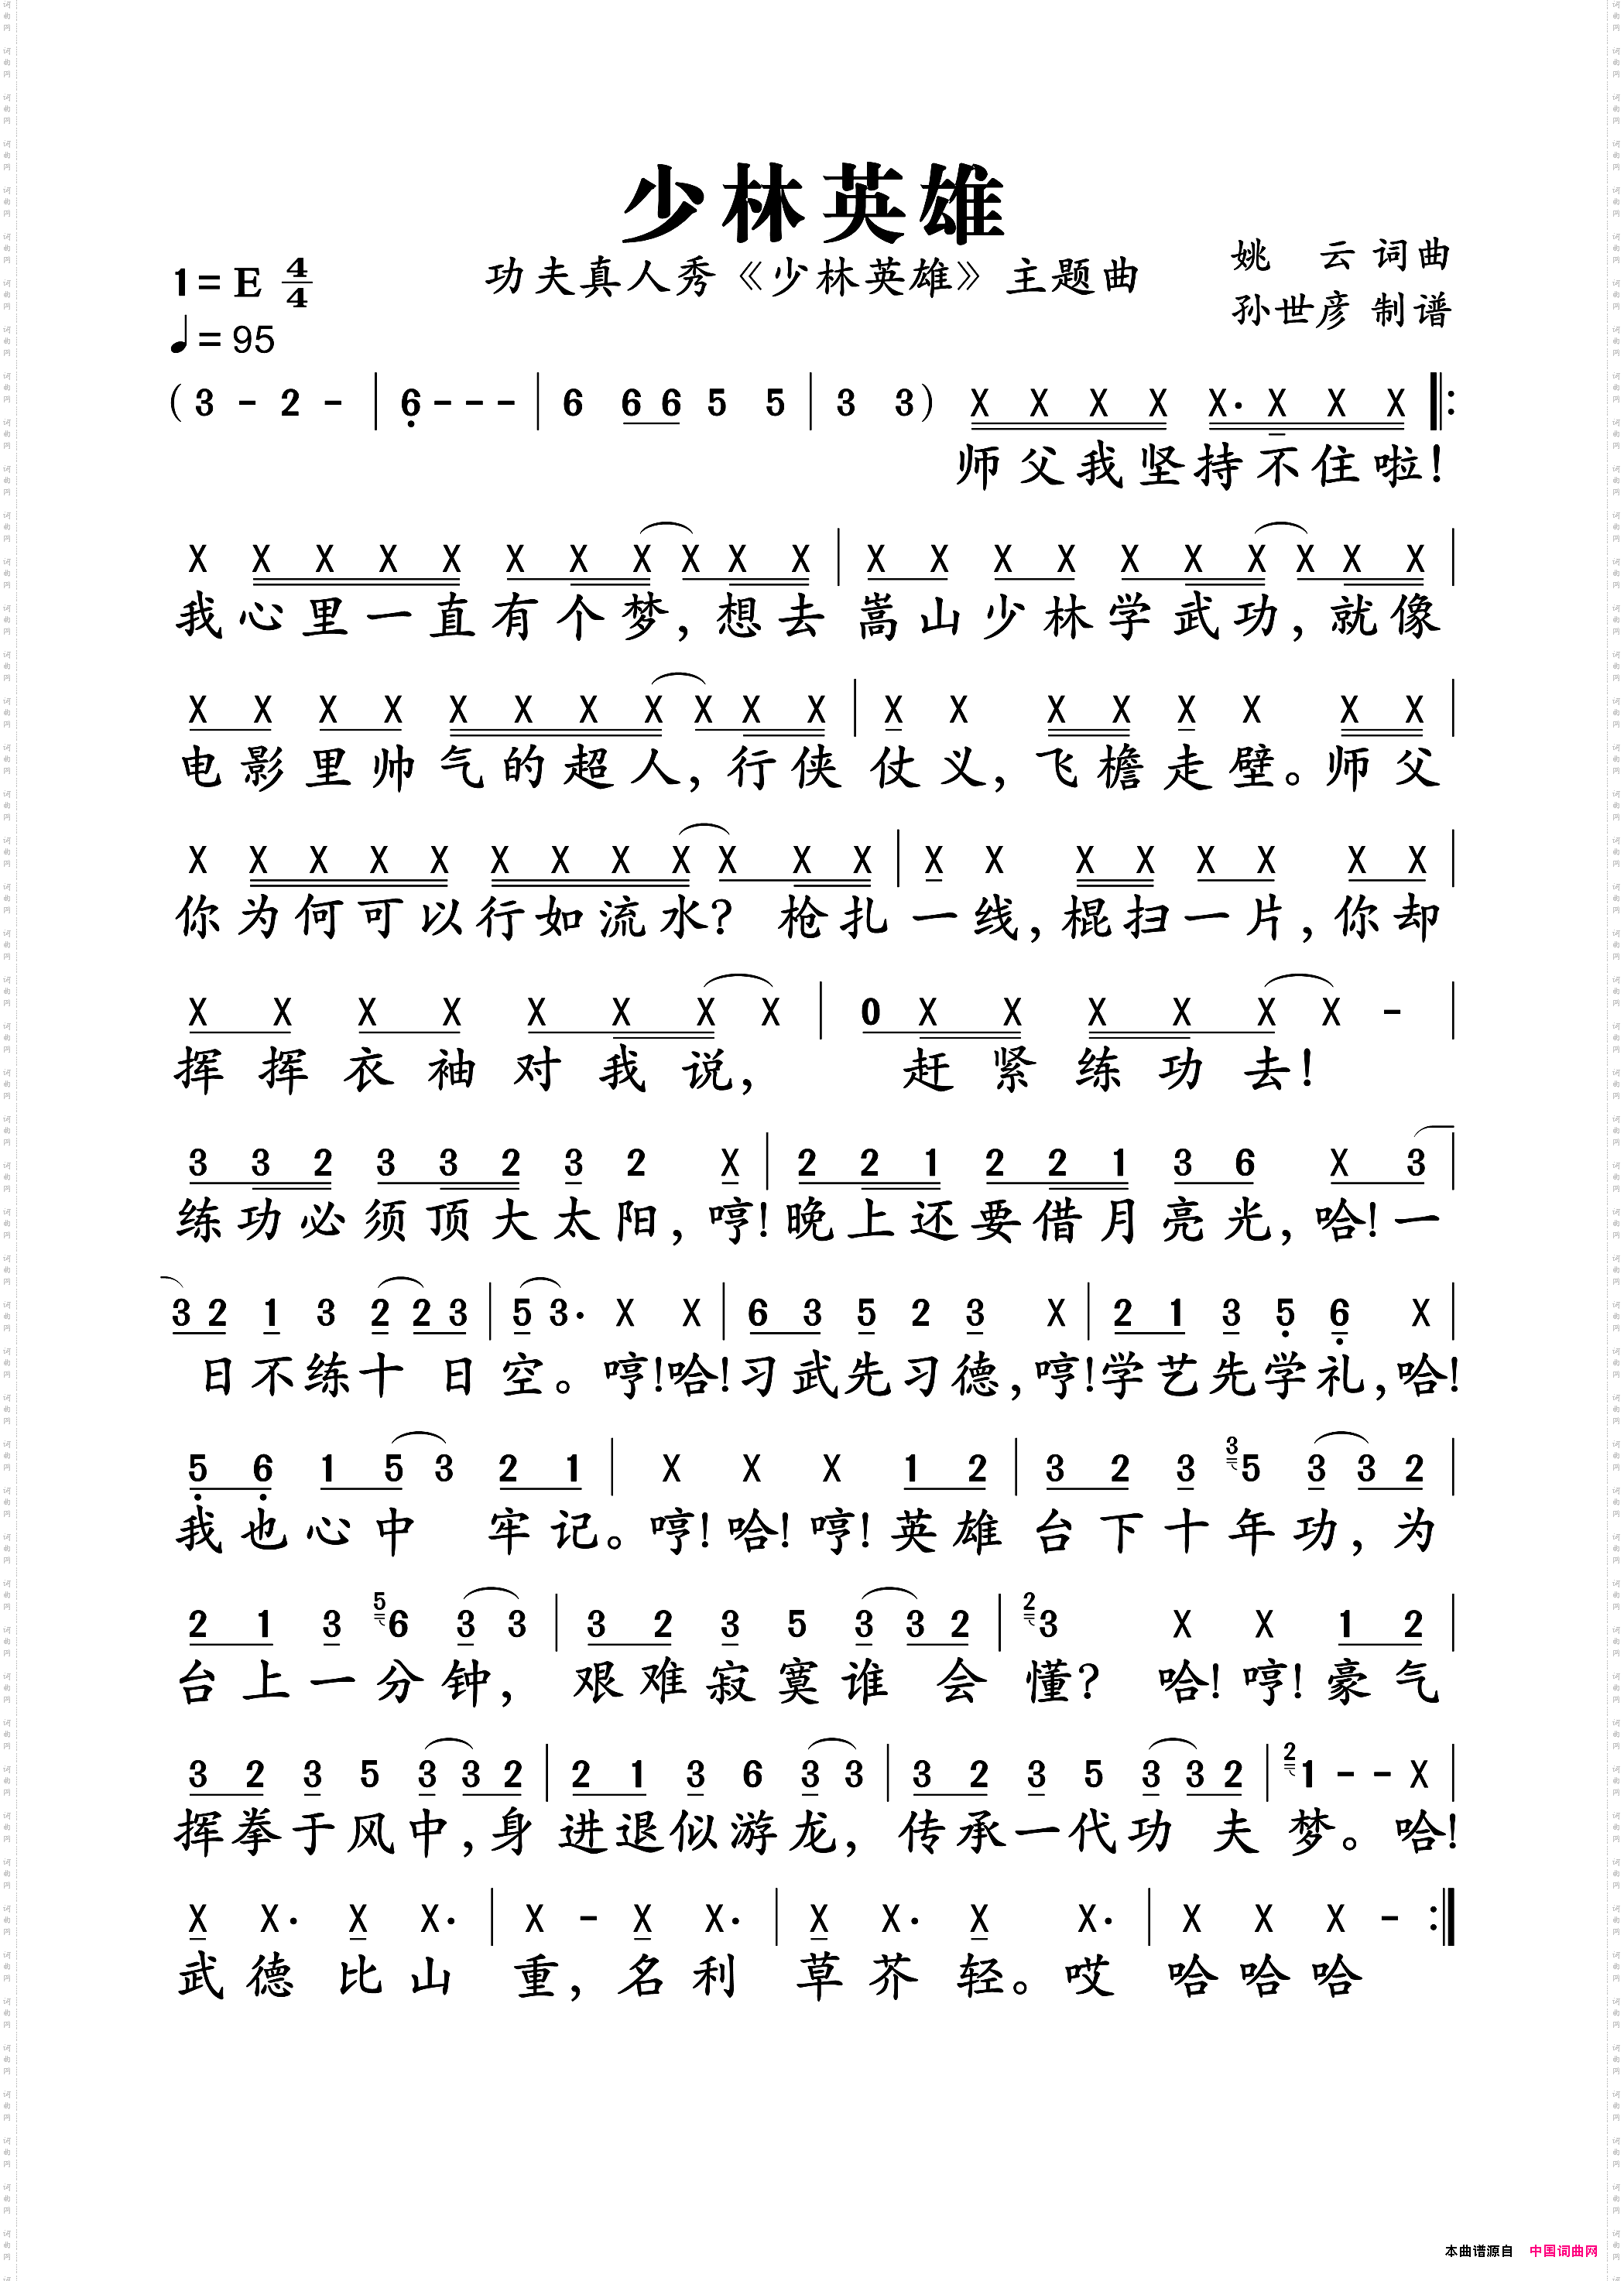 少林英雄
功夫真人秀《少林英雄》主题曲
姚 云 词曲
孙世彦 制谱
1= E 4/4
♩= 95
( 3 - 2 - | 6 - - - | 6 6 6 5 5 | 3 3 ) X X X X X· X X X ‖:
师父我坚持不住啦!
X X X X X X X X X X X | X X X X X X X X X X |
我心里一直有个梦,想去嵩山少林学武功,就像
X X X X X X X X X X X | X X X X X X X X |
电影里帅气的超人,行侠仗义,飞檐走壁。师父
X X X X X X X X X X X X | X X X X X X X X |
你为何可以行如流水? 枪扎一线,棍扫一片,你却
X X X X X X X X | 0 X X X X X X - |
挥挥衣袖对我说, 赶紧练功去!
3 3 2 3 3 2 3 2 X | 2 2 1 2 2 1 3 6 X 3 |
练功必须顶大太阳,哼!晚上还要借月亮光,哈!一
3 2 1 3 2 2 3 | 5 3· X X | 6 3 5 2 3 X | 2 1 3 5 6 X |
日不练十日空。哼!哈!习武先习德,哼!学艺先学礼,哈!
5 6 1 5 3 2 1 | X X X 1 2 | 3 2 3 3 5 3 3 2 |
我也心中 牢记。哼!哈!哼!英雄台下十年功,为
2 1 3 5 6 3 3 | 3 2 3 5 3 3 2 | 2 3 X X 1 2 |
台上一分钟, 艰难寂寞谁 会懂? 哈!哼!豪气
3 2 3 5 3 3 2 | 2 1 3 6 3 3 | 3 2 3 5 3 3 2 | 2 1 - - X |
挥拳于风中,身进退似游龙,传承一代功 夫梦。哈!
X X· X X· | X - X X· | X X· X X· | X X X - :‖
武德比山重,名利草芥轻。哎哈哈哈
本曲谱源自 中国词曲网